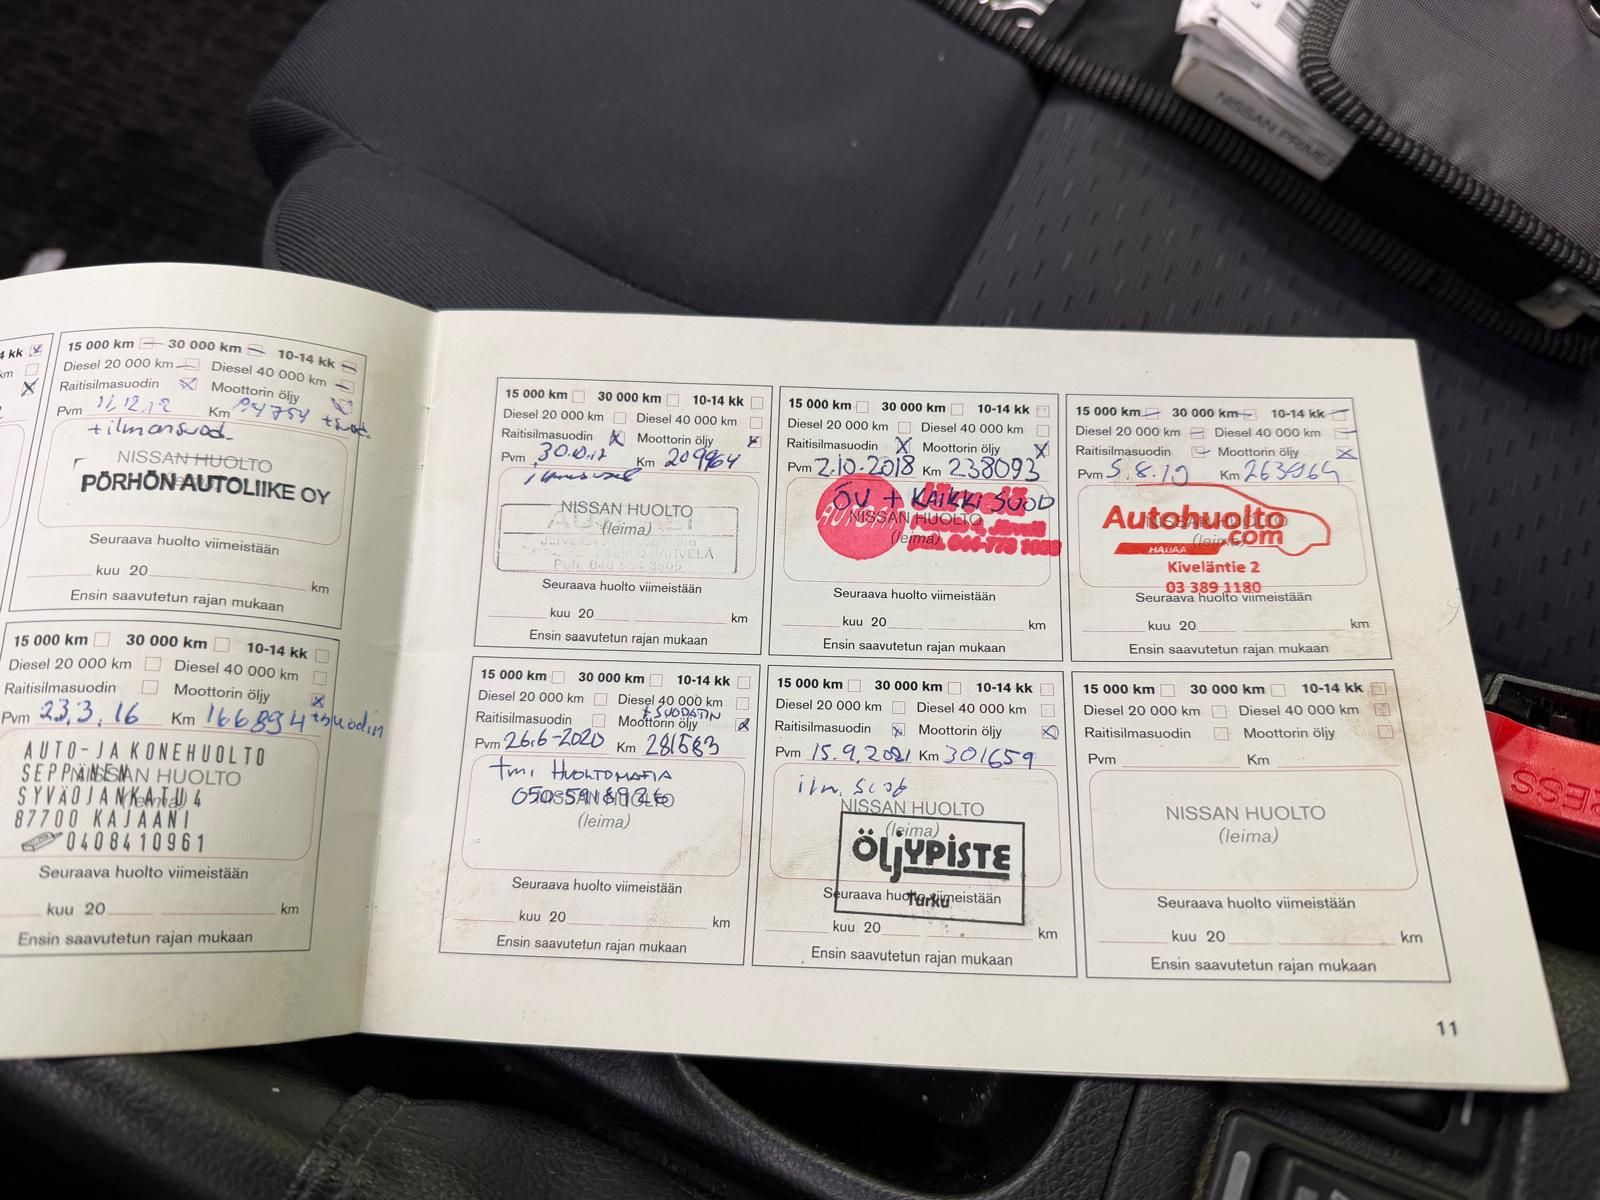 NISSAN PRIMER
4 kk
km
15 000 km 30 000 km 10-14 kk
Diesel 20 000 km Diesel 40 000 km
Raitisilmasuodin Moottorin öljy
Pvm 11.12.12 Km 94754 + suod.
+ ilmansuod.
NISSAN HUOLTO
PÖRHÖN AUTOLIIKE OY
Seuraava huolto viimeistään
kuu 20 km
Ensin saavutetun rajan mukaan
15 000 km 30 000 km 10-14 kk
Diesel 20 000 km Diesel 40 000 km
Raitisilmasuodin Moottorin öljy
Pvm 23.3.16 Km 166894 + suodin
AUTO- JA KONEHUOLTO
SEPPÄNEN
NISSAN HUOLTO
SYVÄOJANKATU 4
(leima)
87700 KAJAANI
0408410961
Seuraava huolto viimeistään
kuu 20 km
Ensin saavutetun rajan mukaan
15 000 km 30 000 km 10-14 kk
Diesel 20 000 km Diesel 40 000 km
Raitisilmasuodin Moottorin öljy
Pvm 30.10.17 Km 209964
NISSAN HUOLTO
(leima)
JÄRVELÄ
Puh. 040 554 3505
Seuraava huolto viimeistään
kuu 20 km
Ensin saavutetun rajan mukaan
15 000 km 30 000 km 10-14 kk
Diesel 20 000 km Diesel 40 000 km
Raitisilmasuodin Moottorin öljy
Pvm 2.10.2018 Km 238093
ÖV + KAIKKI SUOD
NISSAN HUOLTO
(leima)
Seuraava huolto viimeistään
kuu 20 km
Ensin saavutetun rajan mukaan
15 000 km 30 000 km 10-14 kk
Diesel 20 000 km Diesel 40 000 km
Raitisilmasuodin Moottorin öljy
Pvm 5.8.19 Km 263964
NISSAN HUOLTO
(leima)
Autohuolto
.com
HALJAA
Kiveläntie 2
03 389 1180
Seuraava huolto viimeistään
kuu 20 km
Ensin saavutetun rajan mukaan
15 000 km 30 000 km 10-14 kk
Diesel 20 000 km Diesel 40 000 km
+ SUODATIN
Raitisilmasuodin Moottorin öljy
Pvm 26.6-2020 Km 281583
tmi HUOLTOMAFIA
NISSAN HUOLTO
(leima)
Seuraava huolto viimeistään
kuu 20 km
Ensin saavutetun rajan mukaan
15 000 km 30 000 km 10-14 kk
Diesel 20 000 km Diesel 40 000 km
Raitisilmasuodin Moottorin öljy
Pvm 15.9.2021 Km 301659
ilm. suod
NISSAN HUOLTO
(leima)
ÖLJYPISTE
Turku
Seuraava huolto viimeistään
kuu 20 km
Ensin saavutetun rajan mukaan
15 000 km 30 000 km 10-14 kk
Diesel 20 000 km Diesel 40 000 km
Raitisilmasuodin Moottorin öljy
Pvm Km
NISSAN HUOLTO
(leima)
Seuraava huolto viimeistään
kuu 20 km
Ensin saavutetun rajan mukaan
11
PRESS